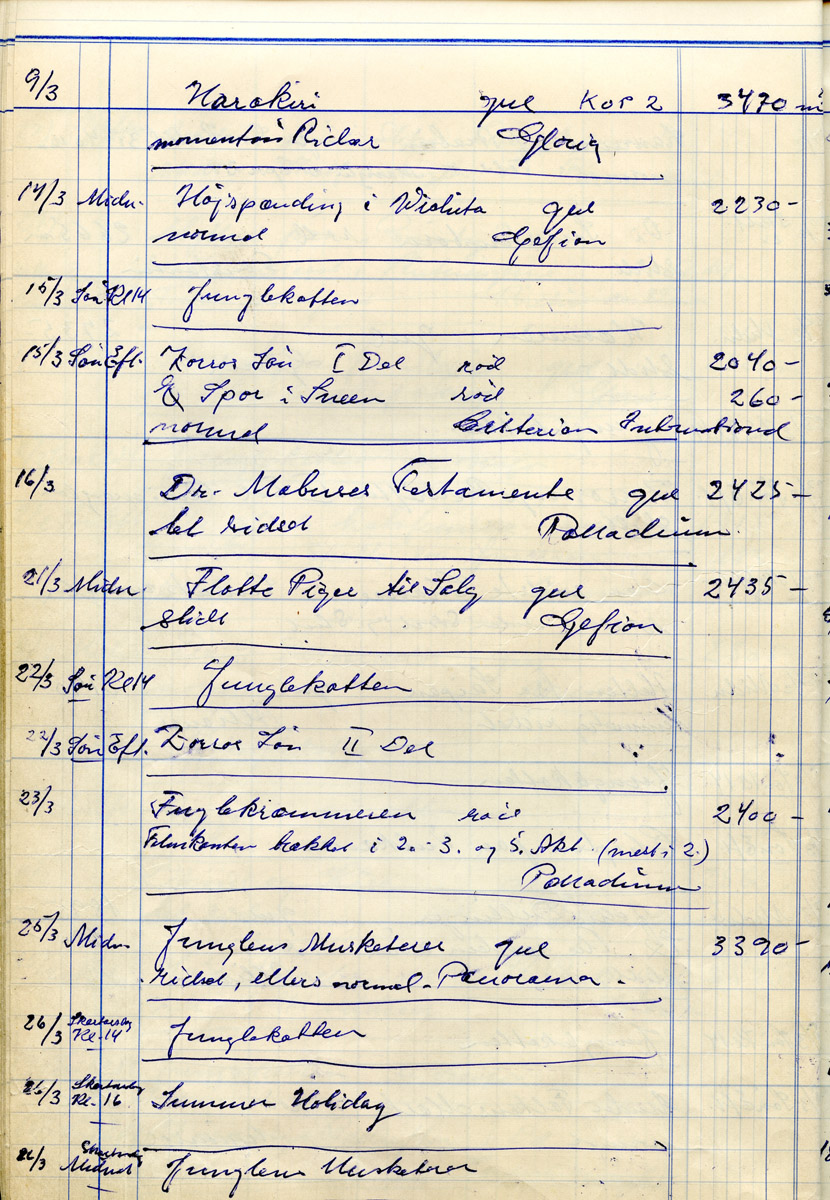 9/3 Harakiri gul Kop 2 3470 m
momentvis Ridser Gloria
14/3 Midn. Højspænding i Wichita gul 2230 -
normal Gefion
15/3 Søn Kl 14 Junglekatten
15/3 Søn Eft. Zorros Søn I Del rød 2040 -
Spor i Sneen rød 260 -
normal Criterion International
16/3 Dr. Mabuses Testamente gul 2425 -
let ridset Palladium
21/3 Midn. Flotte Piger til Salg gul 2435 -
slidt Gefion
22/3 Søn Kl 14 Junglekatten
22/3 Søn Eft. Zorros Søn II Del
23/3 Fuglekræmmeren rød 2400 -
Filmkanten hakket i 2. 3. og 5. Akt. (mest i 2.)
Palladium
25/3 Midn Junglens Musketerer gul 3390 -
ridset, ellers normal - Panorama -
26/3 Skærtorsdag Kl. 14 Junglekatten
26/3 Skærtorsdag Kl. 16 Summer Holiday
26/3 Skærtorsdag Midnat Junglens Musketerer